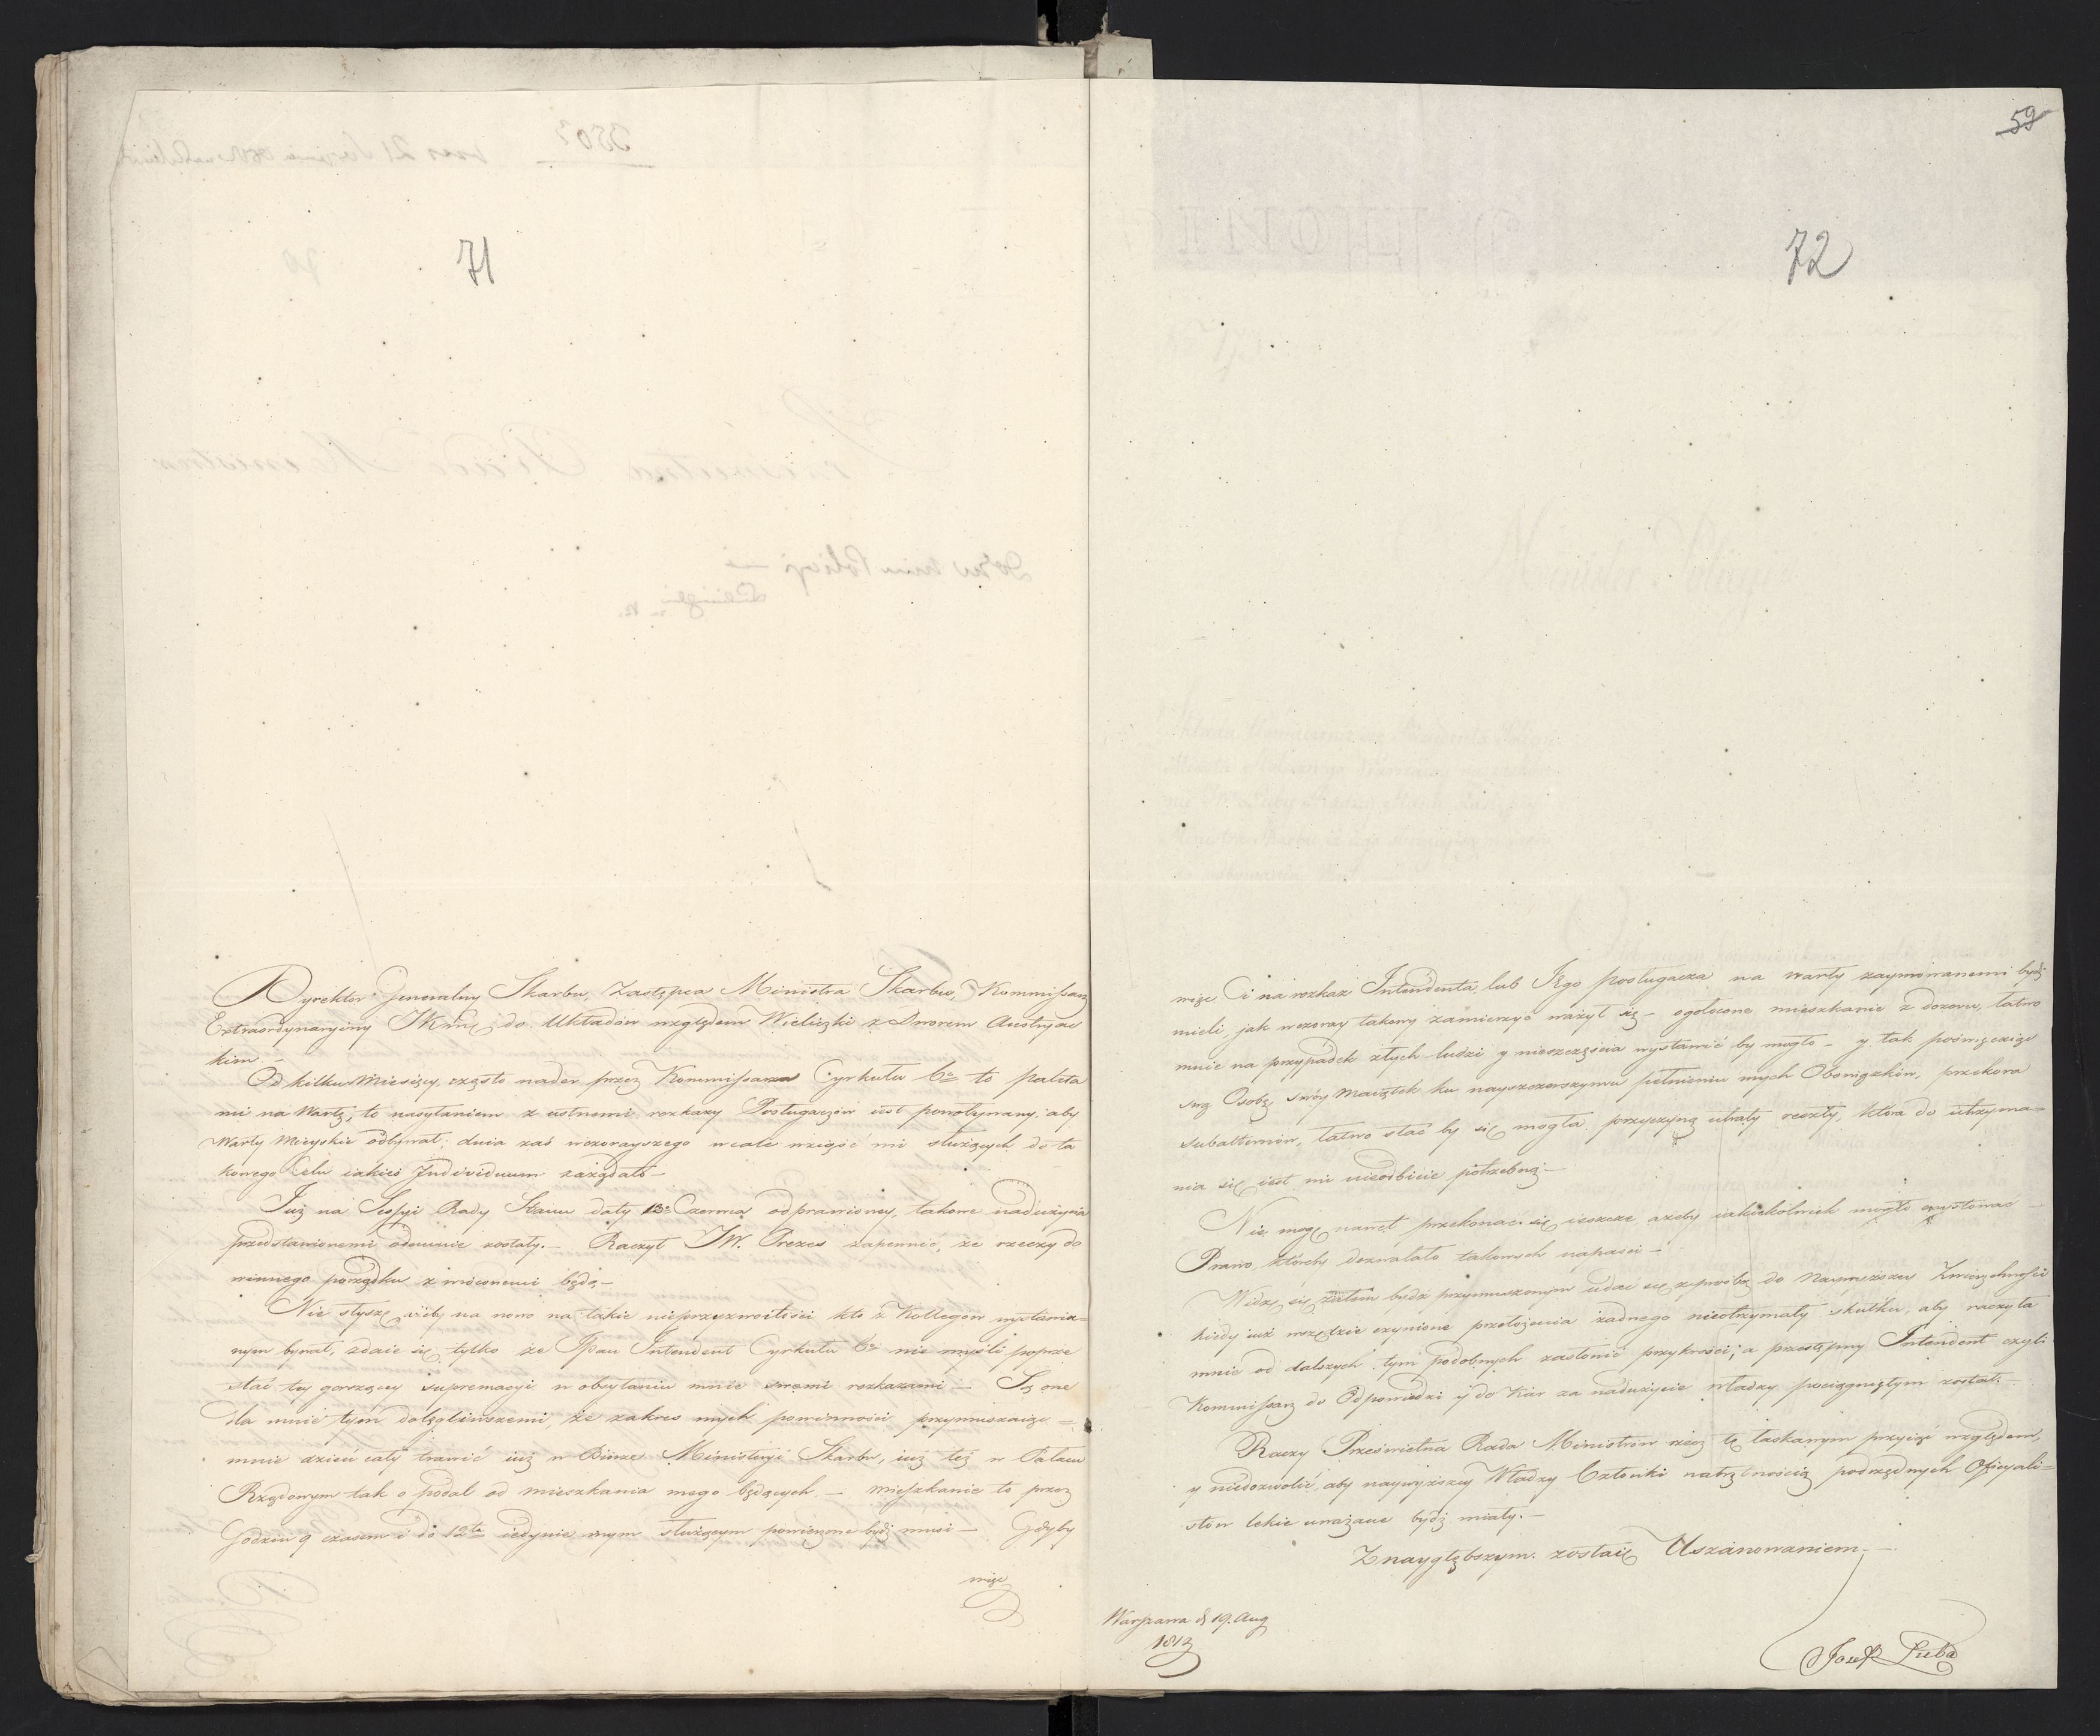 71
Dyrektor Jeneralny Skarbu, Zastępca Ministra Skarbu, Kommissarz
Extraordynaryiny JKMci do Układów względem Wieliczki z Dworem Austryac
kim. —
Od kilku Miesięcy, często nader przez Kommissarza Cyrkułu 6o to paleta
mi na Wartę, to nasyłaniem z ustnemi rozkazy Posługaczów iest powoływany, aby
Warty Mieyskie odbywał; dnia zaś wczorayszego wcale wziąść mi służących do ta
kowego Celu iakieś Jndividuum zażądało —
Już na Sessyi Rady Stanu daty 13o Czerwca odprawioney, takowe nadużycia
przedstawionemi odemnie zostały. — Raczył JW. Prezes zapewnić, że rzeczy do
winnego porządku zwróconemi będą —
Nie słyszę ażeby na nowo na takie nieprzyzwoitości kto z Kollegów wystawia=
nym bywał, zdaie się tylko że JPan Intendent Cyrkułu 6o nie myśli poprze
stać tey gorszącey supremacyi w obsyłaniu mnie swemi rozkazami — Są one
dla mnie tym dolegliwszemi, że zakres mych powinności przymuszaiąc =
mnie dzień cały trawić iuż w Biurze Ministeryi Skarbu, iuż też w Pałacu
Rządowym tak opodal od mieszkania mego będących. — Mieszkanie to przez
Godzin 9 czasem i do 12tu iedynie mym służącym powierzone bydź musi — Gdyby
więc
59
72
więc Ci na rozkaz Intendenta, lub Jego posługacza na warty zaymowanemi bydź
mieli, jak wczoray takowy zamierzyć ważył się — ogołocone mieszkanie z dozoru, łatwo
mnie na przypadek złych ludzi y nieszczęścia wystawić by mogło — y tak poświęcaiąc
swą Osobę, swóy Maiątek ku nayszczerszymu pełnieniu mych Obowiązków, przekora
subalternów, łatwo stać by się mogła przyczyną utraty reszty, która do utrzyma=
nia się iest mi nieodbicie potrzebną —
Nie mogę nawet przekonać się ieszcze ażeby iakiekolwiek mogło exystować
Prawo, któreby dozwalało takowych napaści —
Widzę się zatem bydź przymuszonym udać się z prośbą do Naywyższey Zwierzchności
kiedy iuż wszędzie czynione przełożenia żadnego nieotrzymały skutku, aby raczyła
mnie od dalszych tym podobnych zasłonić przykrości; a przestępny Intendent czyli
Kommissarz do Odpowiedzi y do Kar za nadużycie władzy pociągniętym został. —
Raczy Prześwietna Rada Ministrów rzecz tę łaskawym przyiąć względem,
y niedozwolić, aby naywyższey Władzy Członki natrętnością podrzędnych Oficyali=
stów lekce uważane bydź miały. —
Z naygłębszym zostaię Uszanowaniem. —
Warszawa d 19. Aug
1812
Josef Łuba